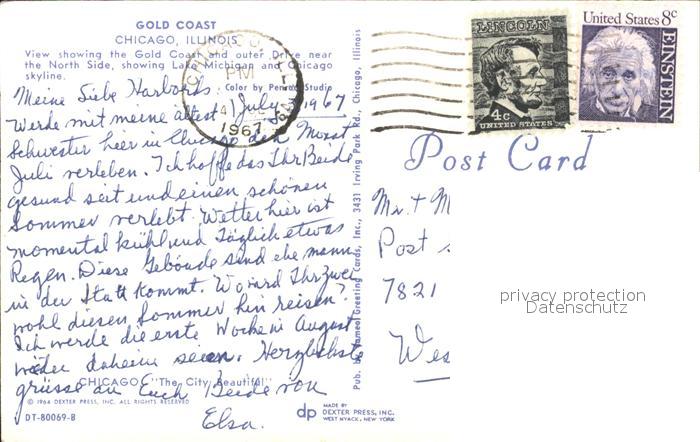 GOLD COAST
CHICAGO, ILLINOIS
View showing the Gold Coast and outer Drive near
the North Side, showing Lake Michigan and Chicago
skyline.
Color by Penrod Studio
CHICAGO, ILL.
PM
1967
LINCOLN
4c
UNITED STATES
United States 8c
EINSTEIN
Post Card
Meine Liebe Harborths: 1 July 1967
Werde mit meine altest
Schwester hier in Chicago den Monat
Juli verleben. Ich hoffe das Ihr Beide
gesund seit und einen schönen
Sommer verlebt. Wetter hier ist
momental kühl und Täglich etwas
Regen. Diese Gebäude sind ehe mann
in der Statt kommt. Wo ward Ihr zwei
wohl diesen Sommer hin reisen?
Ich werde die erste Woche in August
wieder daheim seien. Herzlichste
grüsse an Euch Beide von
Elsa.
CHICAGO "The City Beautiful"
© 1964 DEXTER PRESS, INC. ALL RIGHTS RESERVED
DT-80069-B
dp
MADE BY
DEXTER PRESS, INC.
WEST NYACK, NEW YORK
Pub. by Cameo Greeting Cards, Inc., 3431 Irving Park Rd., Chicago, Illinois
Mr. + M
Post
7821
Wes
privacy protection
Datenschutz